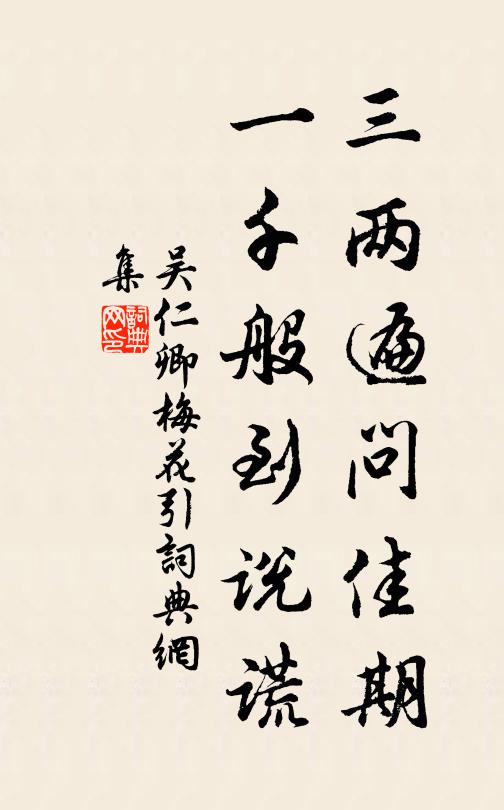 三两遍问佳期
一千般到说谎
吴仁卿梅花引詞典網
集
詞典
网印